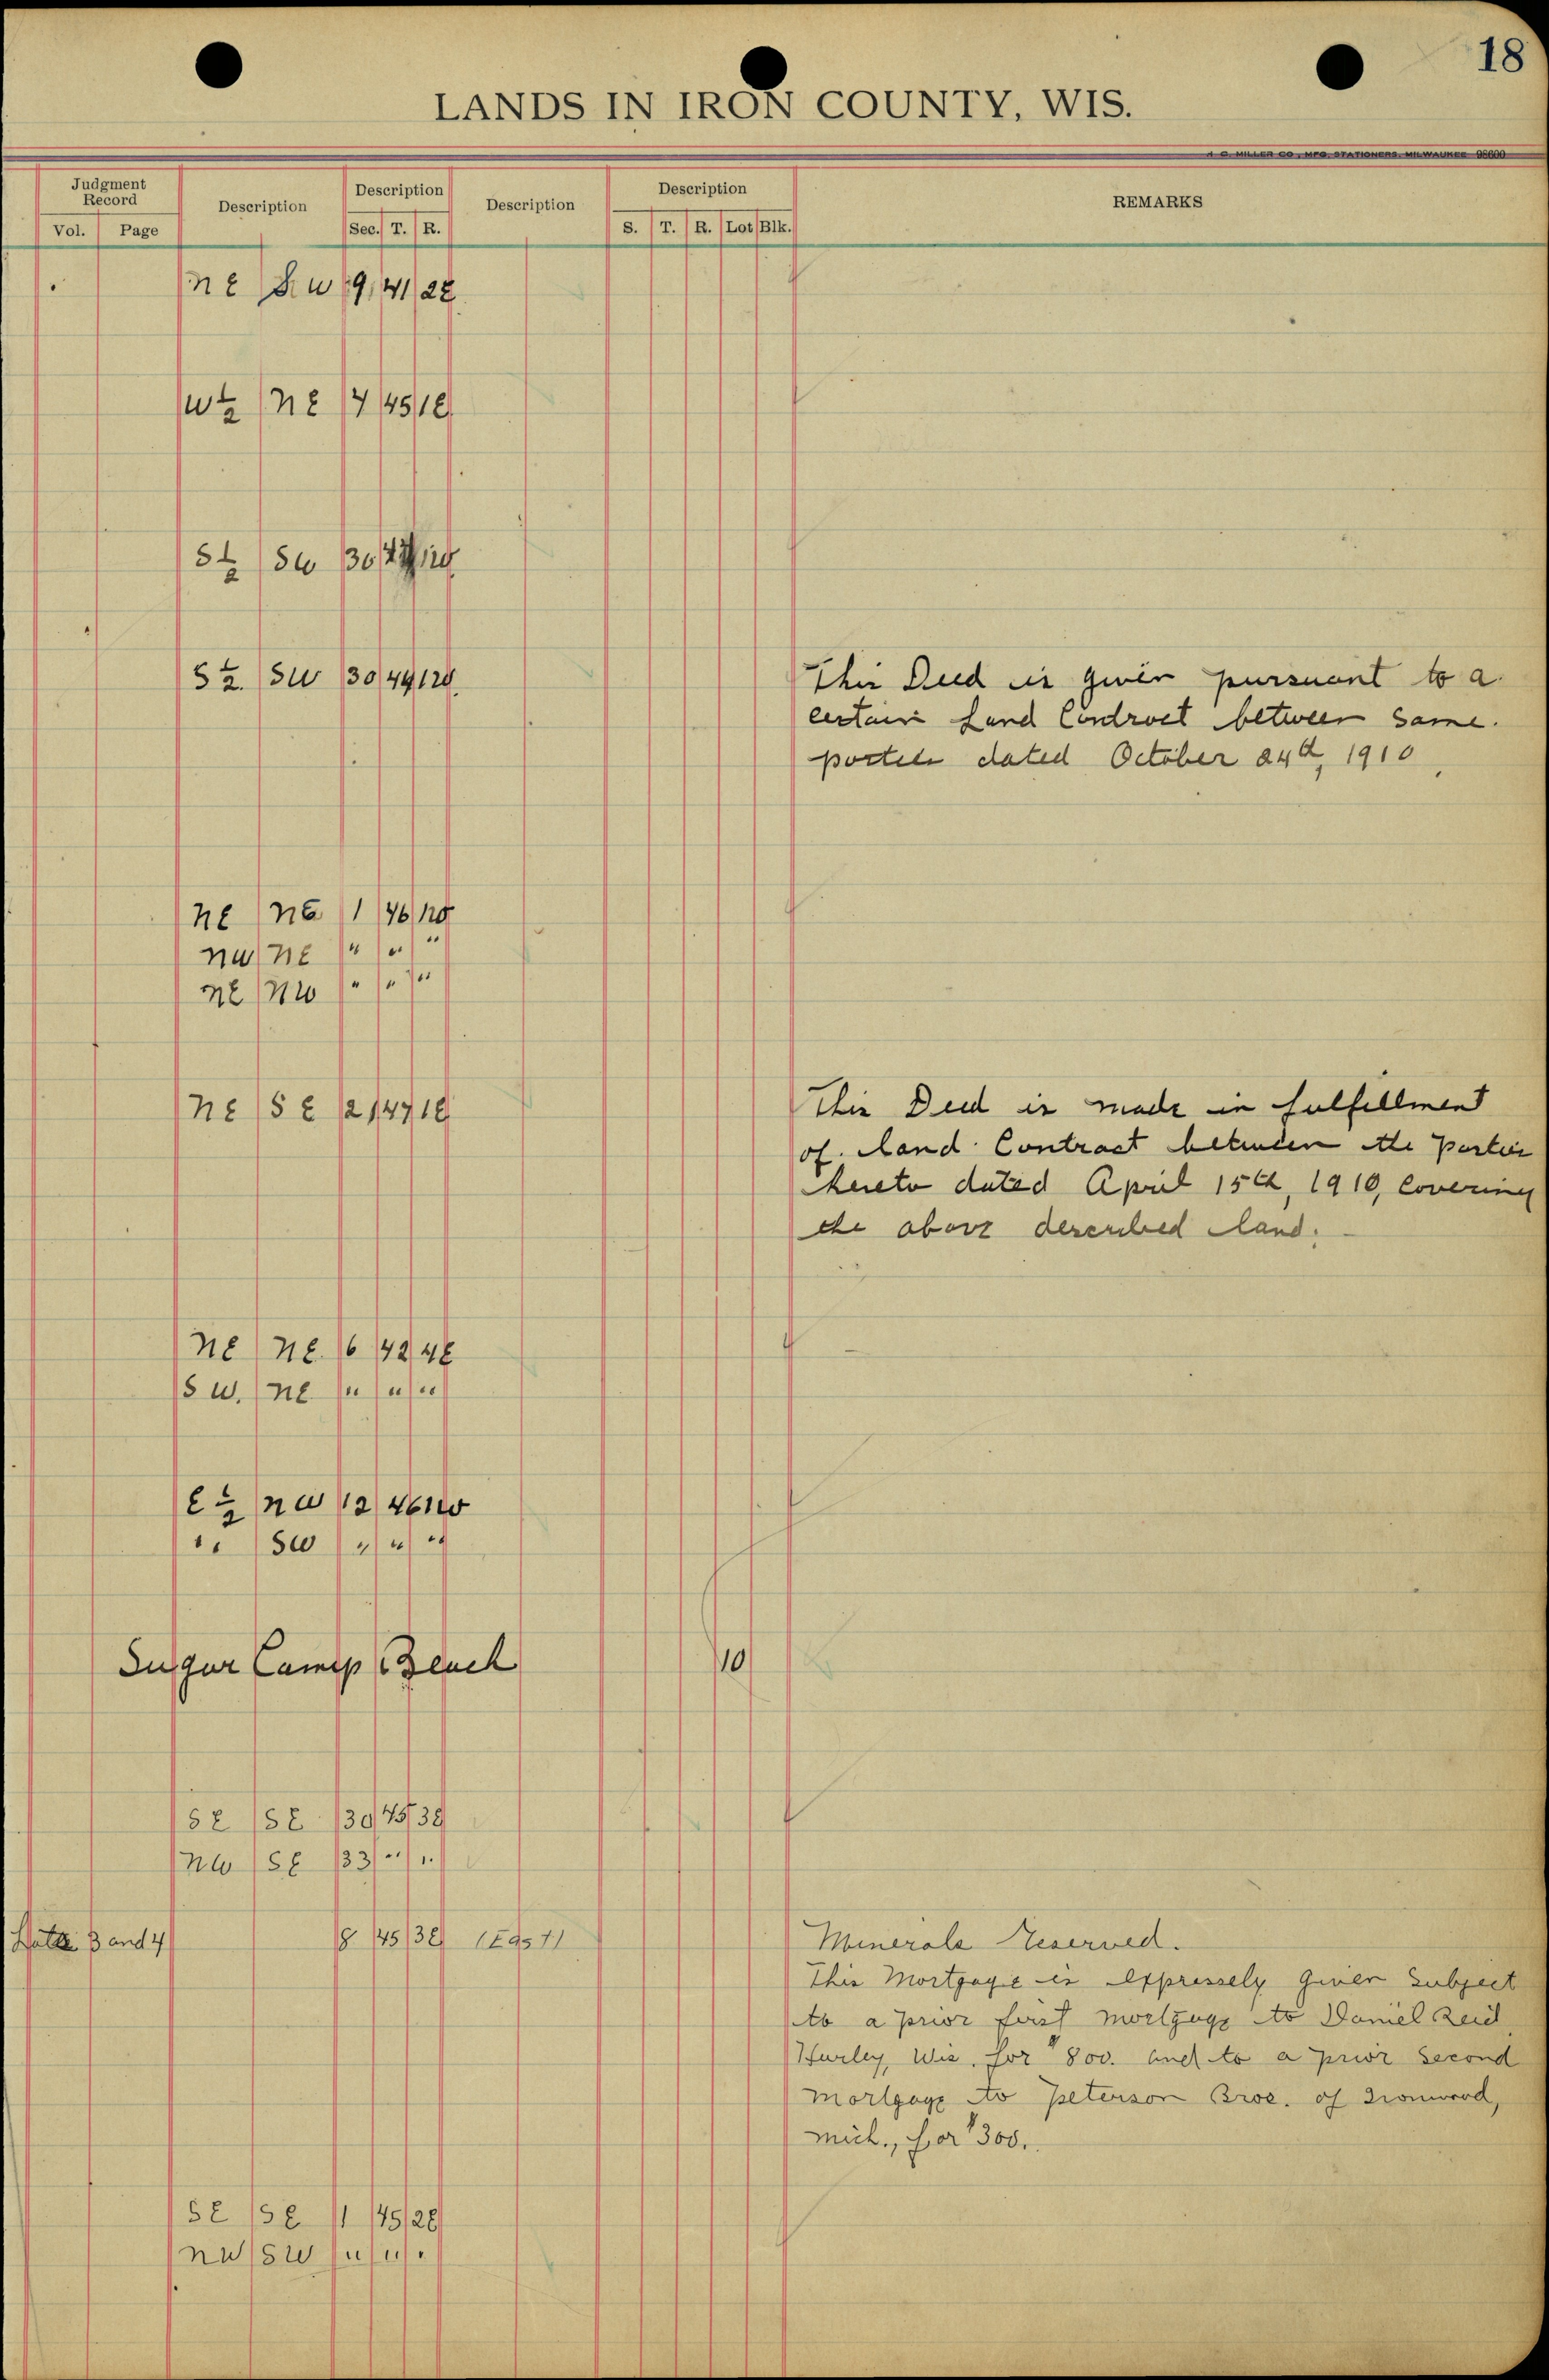 18
LANDS IN IRON COUNTY, WIS.
H. C. MILLER CO., MFG. STATIONERS, MILWAUKEE 98600
Judgment Record Description Description Description Description REMARKS
Vol. Page Sec. T. R. S. T. R. Lot Blk.
NE SW 9 41 2E
W½ NE 4 45 1E
S½ SW 30
S½ SW 30 44 1W This Deed is given pursuant to a
certain Land Contract between same
parties dated October 24th, 1910
NE NE 1 46 1W
NW NE " " "
NE NW " " "
NE SE 2 47 1E This Deed is made in fulfillment
of Land Contract between the parties
hereto dated April 15th, 1910, covering
the above described land.
NE NE 6 42 4E
SW. NE " " "
E½ NW 12 46 1W
" SW " " "
Sugar Camp Beach 10
SE SE 30 45 3E
NW SE 33 " "
Lots 3 and 4 8 45 3E (East) Minerals Reserved.
This Mortgage is expressely given subject
to a prior first mortgage to Daniel Reid
Hurley, Wis. for $800. and to a prior second
mortgage to Peterson Bros. of Ironwood,
Mich., for $300.
SE SE 11 45 2E
NW SW " " "